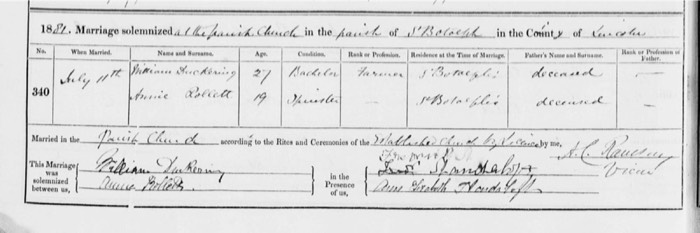 1881. Marriage solemnized at the parish Church in the parish of St Botolph in the County of Lincoln
No. When Married. Name and Surname. Age. Condition. Rank or Profession. Residence at the Time of Marriage. Father's Name and Surname. Rank or Profession of Father.
340 July 11th William Duckering 27 Bachelor Farmer St Botolph's deceased —
Annie Pollett 19 Spinster — St Botolph's deceased —
Married in the Parish Church according to the Rites and Ceremonies of the Established Church by Licence by me,
This Marriage was solemnized between us, William Duckering
Annie Pollett
in the Presence of us,
Ann
A. C.
Vicar